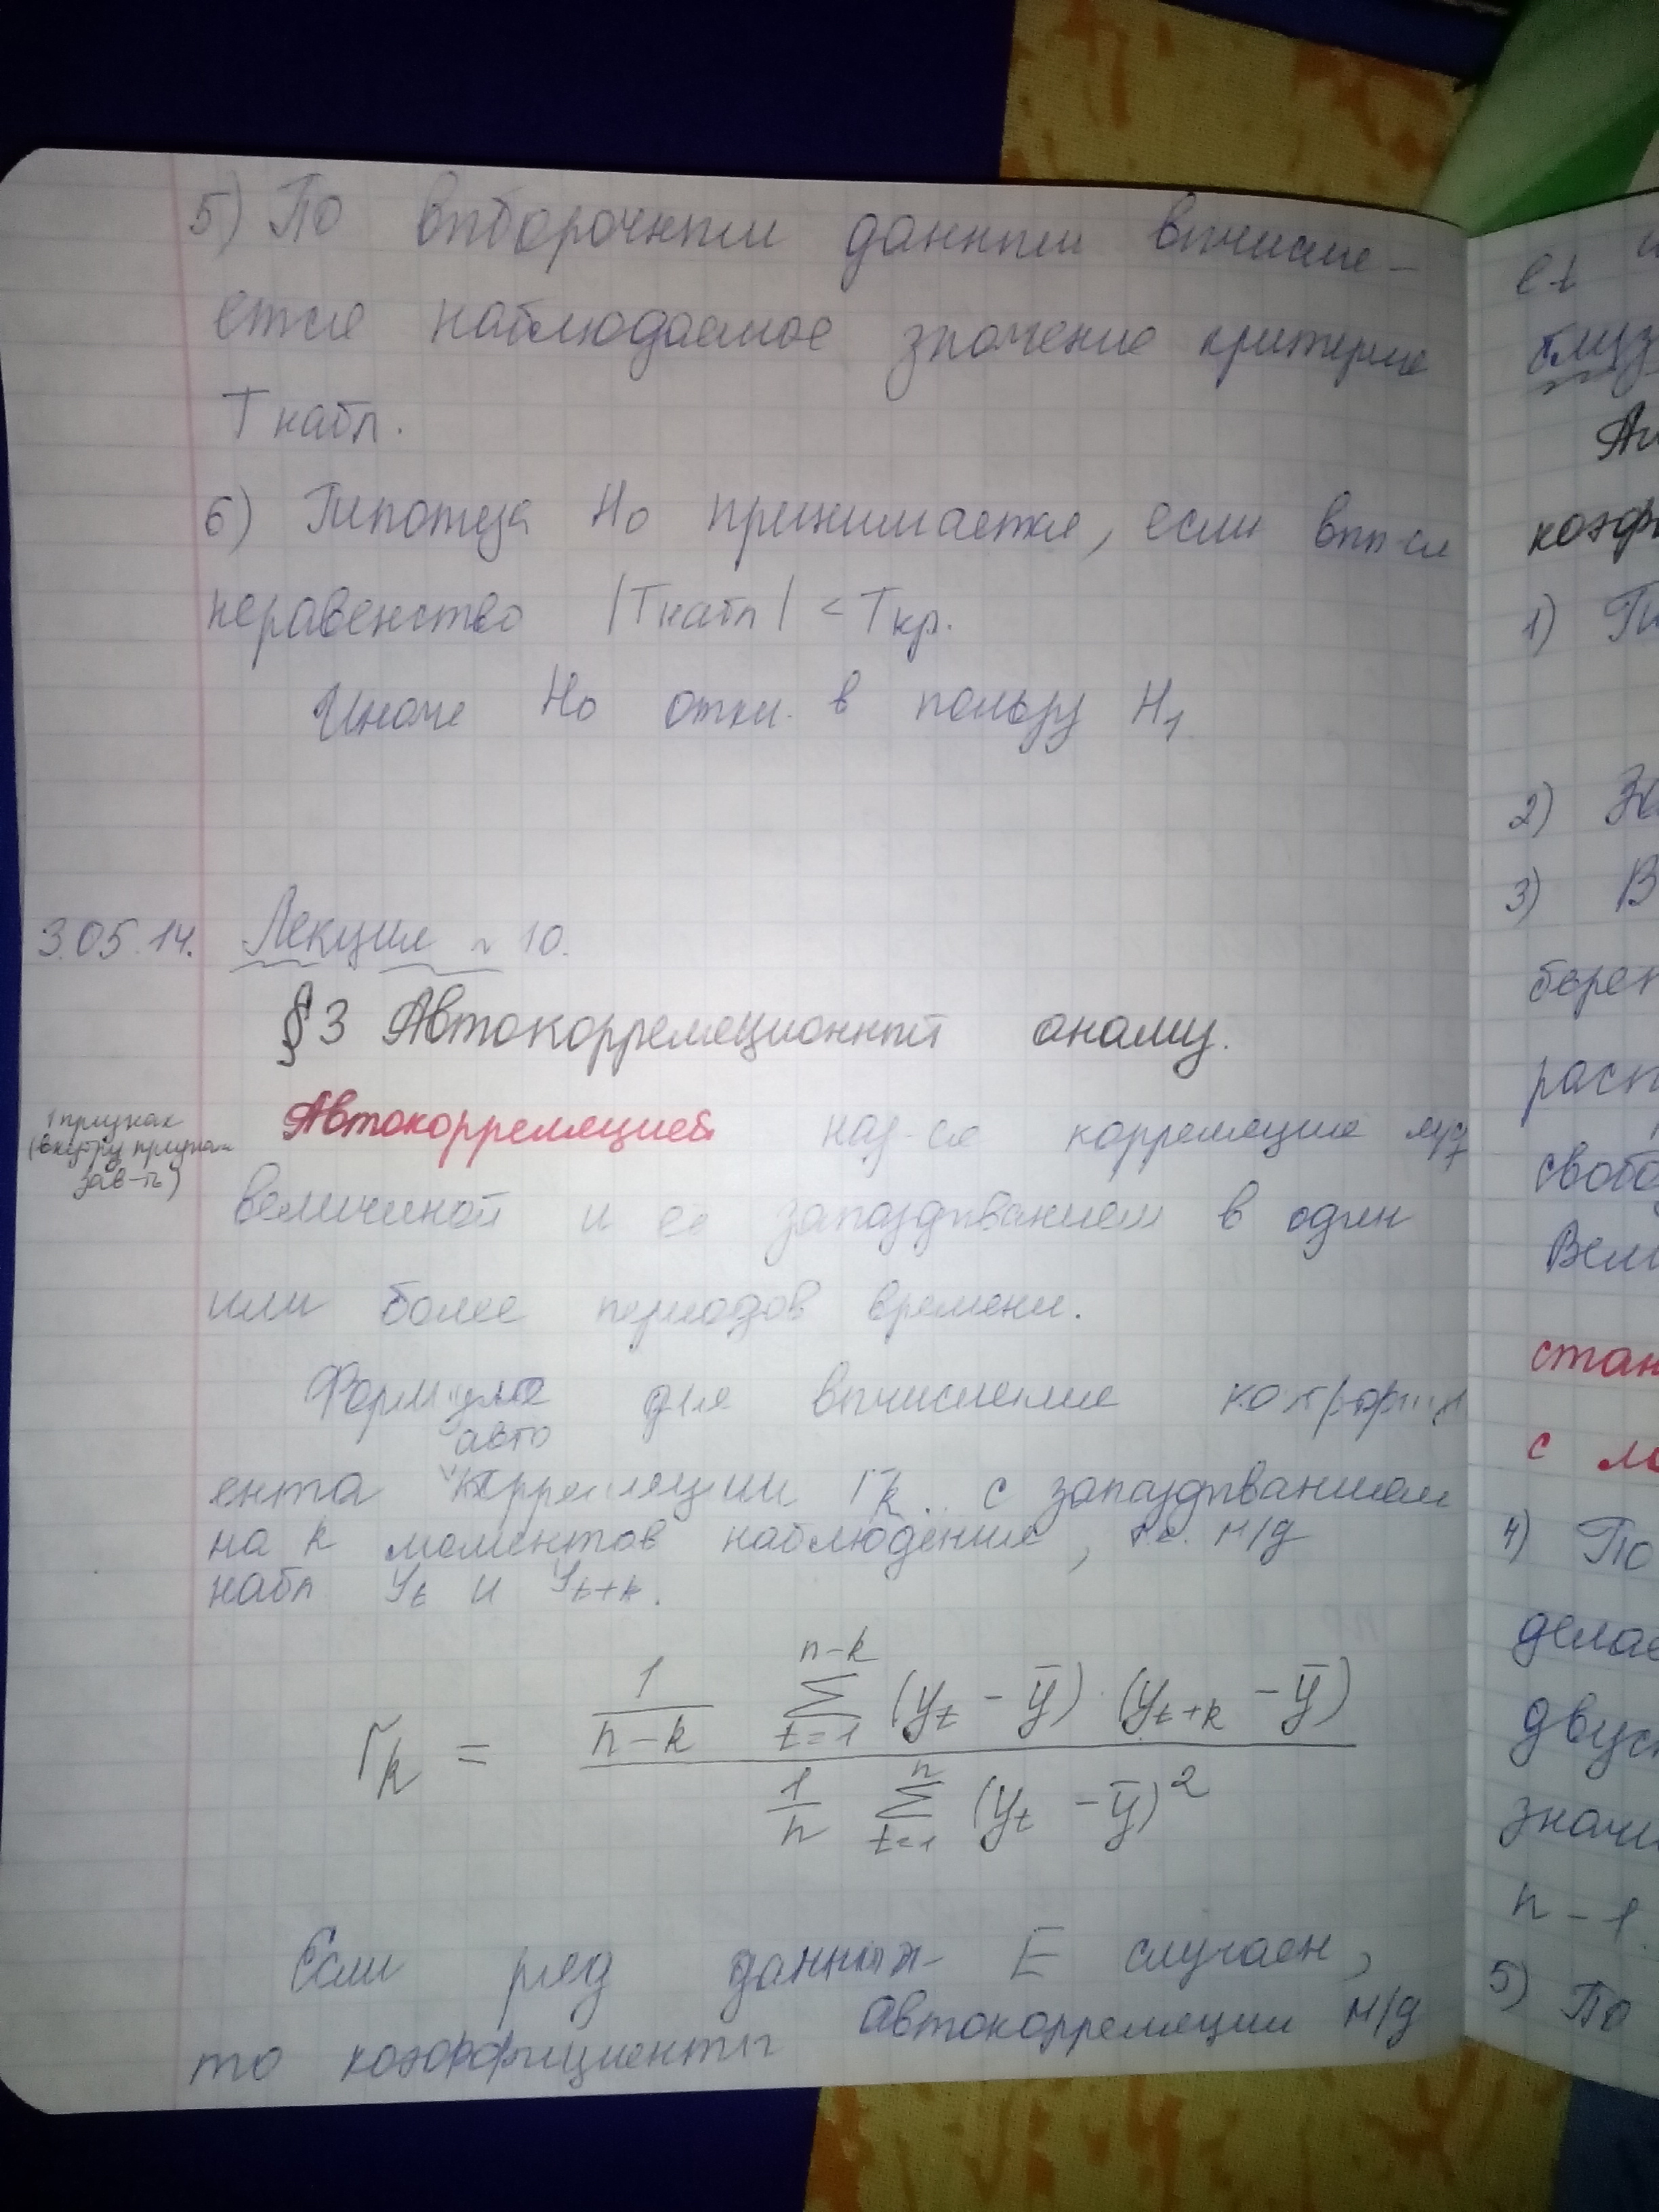 5) По выборочным данным вычисля-
ется наблюдаемое значение критерия
Tнабл.
6) Гипотеза H₀ принимается, если вып-ся
неравенство |Tнабл| < Tкр.
Иначе H₀ откл. в пользу H₁
3.05.14. Лекция № 10.
§3 Автокорреляционный анализ.
1 признак
(внутри признака
зав-ть)
Автокорреляцией наз-ся корреляция м/д
величиной и ее запаздыванием в один
или более периодов времени.
Формула для вычисления коэффици
авто
ента корреляции rₖ с запаздыванием
на k моментов наблюдения, т.е. м/д
набл yₜ и yₜ₊ₖ.
rₖ = (1/(n-k) ∑ₜ₌₁ⁿ⁻ᵏ (yₜ - ȳ)·(yₜ₊ₖ - ȳ)) / (1/n ∑ₜ₌₁ⁿ (yₜ - ȳ)²)
Если ряд данных E случаен,
то коэффициенты автокорреляции м/д
1)
2)
3) В
стан
4) По
делае
двуст
значи
n - 1.
5) По